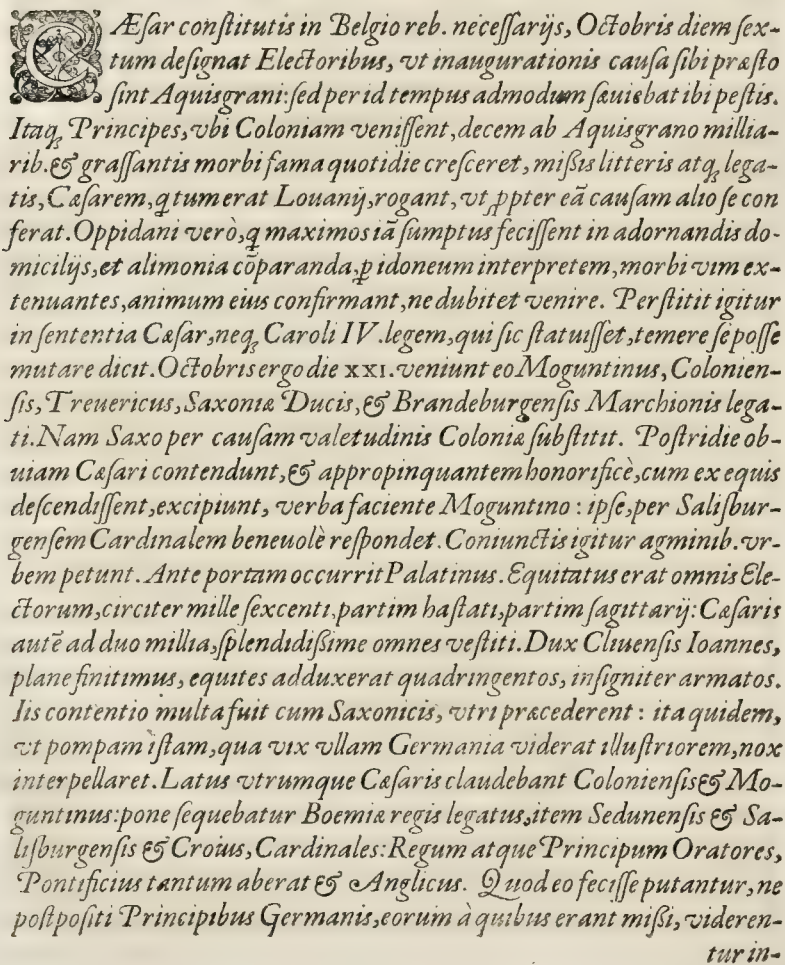 CÆſar conſtitutis in Belgio reb. neceſſarijs, Octobris diem ſex-
tum deſignat Electoribus, vt inaugurationis cauſa ſibi præſto
ſint Aquisgrani: ſed per id tempus admodum ſæuiebat ibi peſtis.
Itaq; Principes, vbi Coloniam veniſſent, decem ab Aquisgrano millia-
rib. & graſſantis morbi fama quotidie creſceret, miſsis litteris atq; lega-
tis, Cæſarem, q tum erat Louanij, rogant, vt ꝓpter eã cauſam alio ſe con
ferat. Oppidani verò, q maximos iã ſumptus feciſſent in adornandis do-
micilijs, et alimonia cõparanda, ꝑ idoneum interpretem, morbi vim ex-
tenuantes, animum eius confirmant, ne dubitet venire. Perſtitit igitur
in ſententia Cæſar, neq; Caroli IV. legem, qui ſic ſtatuiſſet, temere ſe poſſe
mutare dicit. Octobris ergo die XXI. veniunt eo Moguntinus, Colonien-
ſis, Treuericus, Saxoniæ Ducis, & Brandeburgenſis Marchionis lega-
ti. Nam Saxo per cauſam valetudinis Coloniæ ſubſtitit. Poſtridie ob-
uiam Cæſari contendunt, & appropinquantem honorificè, cum ex equis
deſcendiſſent, excipiunt, verba faciente Moguntino: ipſe, per Saliſbur-
genſem Cardinalem beneuolè reſpondet. Coniunctis igitur agminib. vr-
bem petunt. Ante portam occurrit Palatinus. Equitatus erat omnis Ele-
ctorum, circiter mille ſexcenti, partim haſtati, partim ſagittarij: Cæſaris
autẽ ad duo millia, ſplendidiſsime omnes veſtiti. Dux Cliuenſis Ioannes,
plane finitimus, equites adduxerat quadringentos, inſigniter armatos.
Iis contentio multa fuit cum Saxonicis, vtri præcederent: ita quidem,
vt pompam iſtam, qua vix vllam Germania viderat illuſtriorem, nox
interpellaret. Latus vtrumque Cæſaris claudebant Colonienſis & Mo-
guntinus: pone ſequebatur Boemiæ regis legatus, item Sedunenſis & Sa-
liſburgenſis & Croius, Cardinales: Regum atque Principum Oratores,
Pontificius tantum aberat & Anglicus. Quod eo feciſſe putantur, ne
poſtpoſiti Principibus Germanis, eorum à quibus erant miſsi, videren-
tur in-